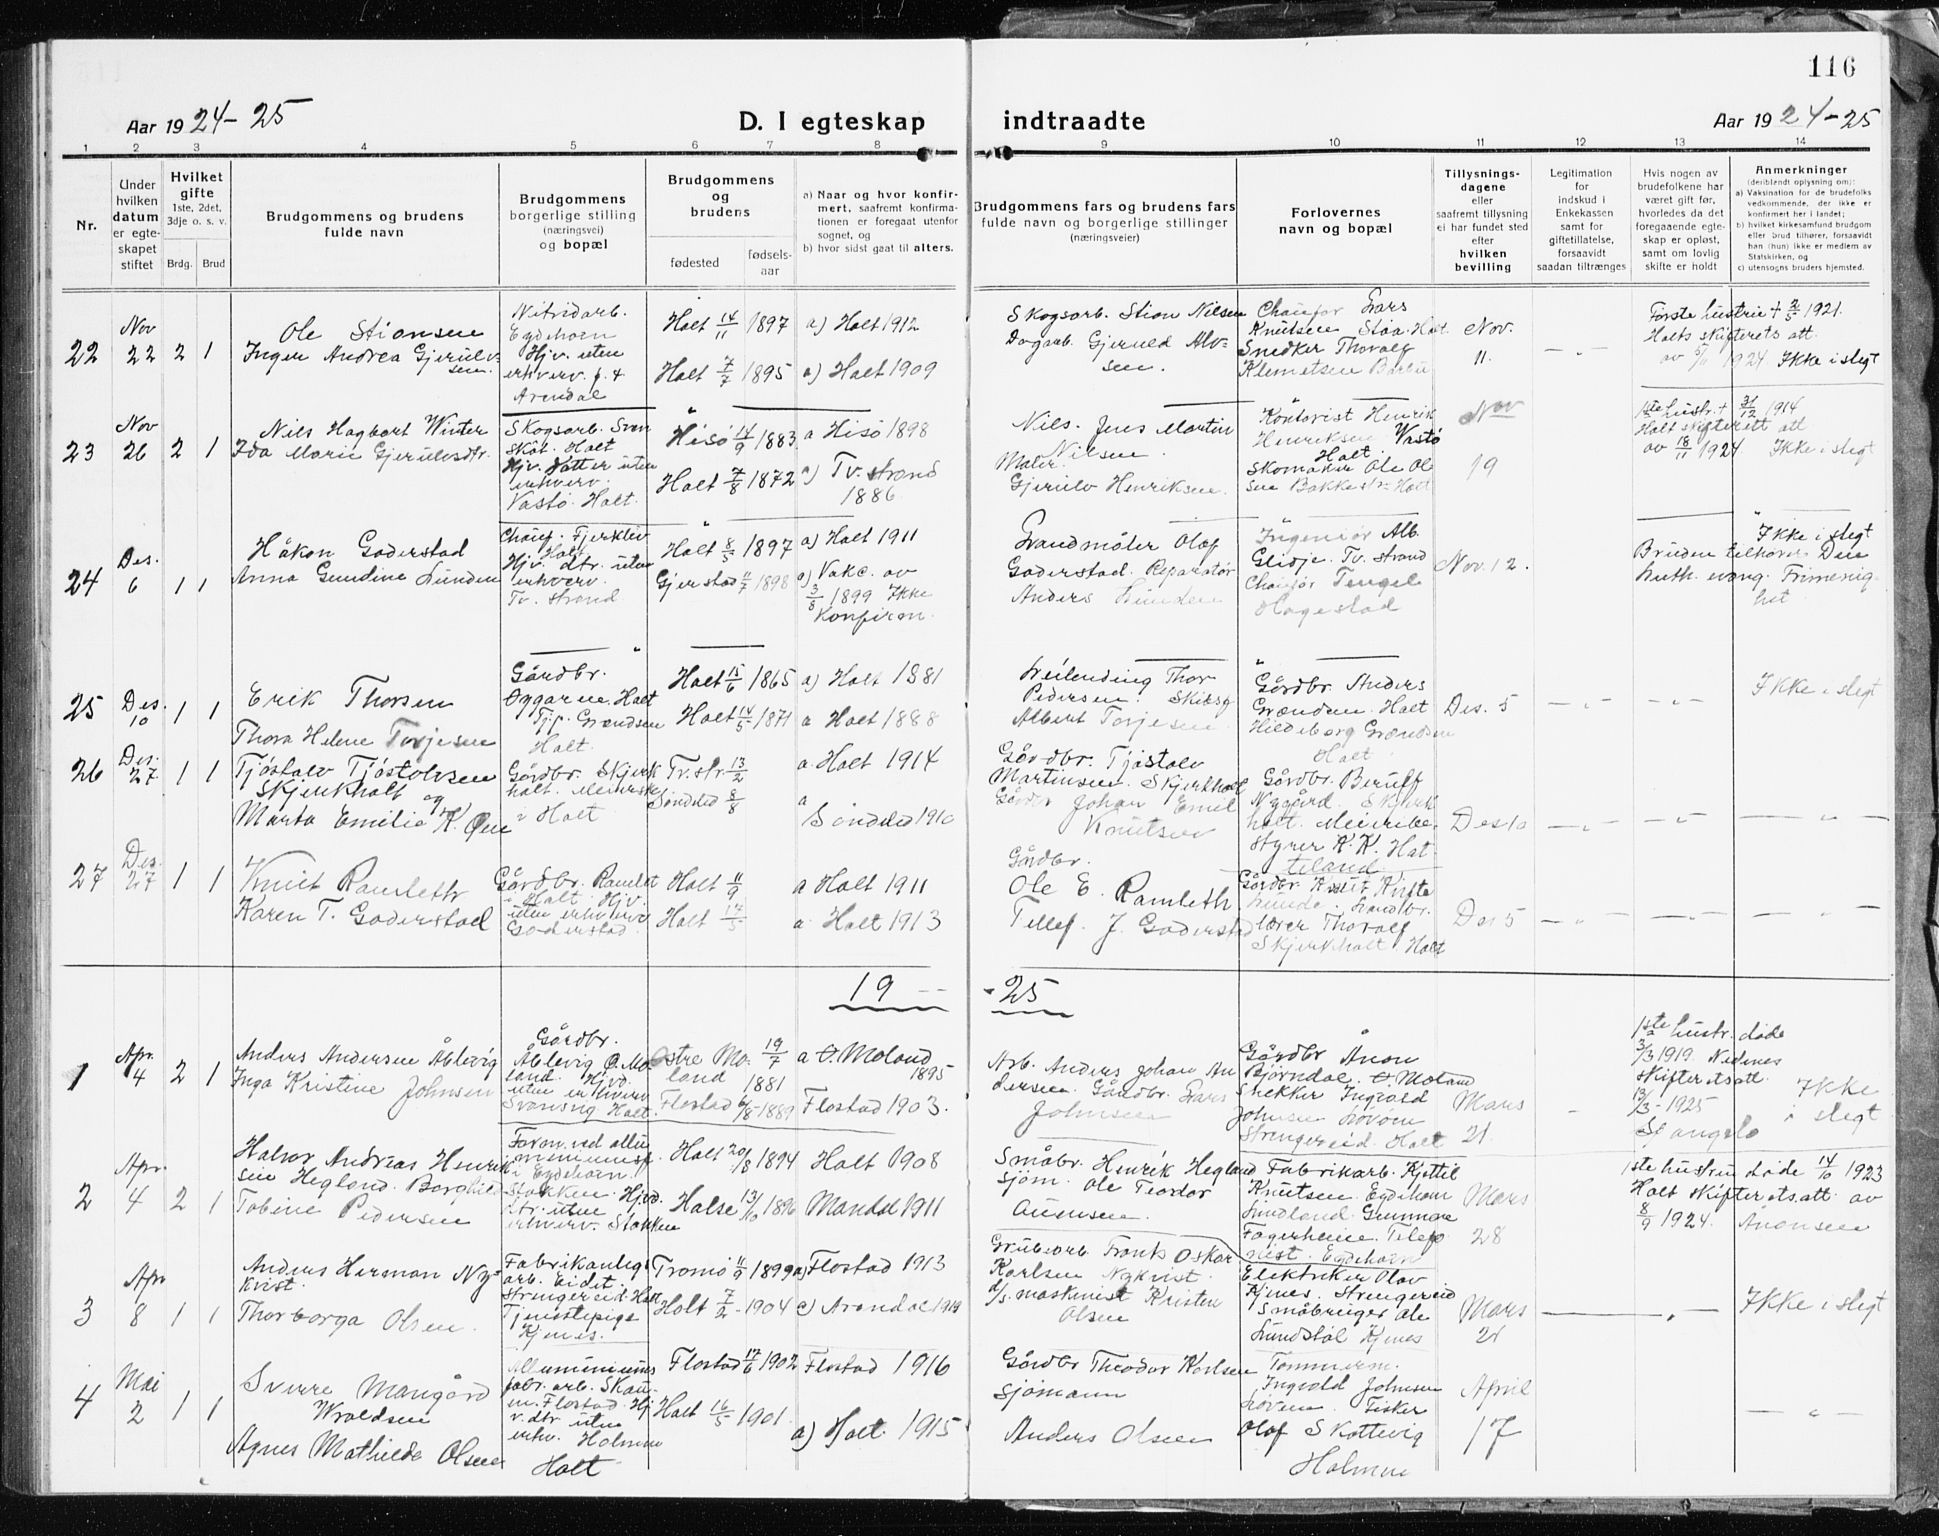 116
Aar 1924-25
D. I egteskap indtraadte
Aar 1924-25
1 2 3 4 5 6 7 8 9 10 11 12 13 14
Nr.
Under hvilken datum er egteskapet stiftet
Hvilket gifte
1ste, 2det, 3dje o. s. v.
Brdg. Brud
Brudgommens og brudens
fulde navn
Brudgommens
borgerlige stilling
(næringsvei)
og bopæl
Brudgommens
og
brudens
fødested
fødsels-
aar
a) Naar og hvor konfir-
mert, saafremt konfirma-
tionen er foregaat utenfor
sognet, og
b) hvor sidst gaat til alters.
Brudgommens fars og brudens fars
fulde navn og borgerlige stillinger
(næringsveier)
Forlovernes
navn og bopæl
Tillysnings-
dagene
eller
saafremt tillysning
ei har fundet sted
efter
hvilken
bevilling
Legitimation
for
indskud i
Enkekassen
samt for
giftetillatelse,
forsaavidt
saadan tiltrænges
Hvis nogen av
brudefolkene har
været gift før,
hvorledes da det
foregaaende egte-
skap er opløst,
samt om lovlig
skifte er holdt
Anmerkninger
(deriblendt oplysning om):
a) Vaksination for de brudefolks
vedkommende, der ikke er
konfirmert her i landet;
b) hvilket kirkesamfund brudgom
eller brud tilhører, forsaavidt
han (hun) ikke er medlem av
Statskirken, og
c) utensogns bruders hjemsted.
22
Nov
22
2 1
Ole Stiansen
Inger Andrea Gjerulv-
sen
Nitridarb.
Eydehavn
Hjv. uten
erhverv. f. t
Arendal
Holt 14/11 1897
Holt 7/7 1895
a) Holt 1912
a) Holt 1909
Skogsarb. Stian Nilsen
Dagarb. Gjeruld Alv-
sen.
Chaufør Lars
Knutsen Støa. Holt
Snedker Thoralf
Klemetsen Barbu
Nov.
11.
— „ —
Første hustru † 2/5 1921.
Holts skifterets att.
1924 Ikke i slegt
23
Nov
26
2 1
Nils Hagbart Winter
Ida Marie Gjerulvsdtr.
Skogsarb.
Holt
Hjv. datter uten
erhverv.
Vastø. Holt.
Hisö 14/9 1883
Holt 7/8 1872
a Hisö 1898
a) Tv. strand
1886
Nils. Jens Martin
Nilsen.
Maler.
Gjerulv Henriksen.
Henrik
Henriksen Vastø
Holt.
Skomaker Ole Ol
sen Bakke Holt
Nov
19
1ste hustr. † 31/12 1914
Holt skifterett att
av 18/11 1924 Ikke i slegt
24
Des.
6
1 1
Håkon Goderstad
Anna Gundine Lunden
Chauf. Fjerkleiv
Holt
Hjv. dtr. uten
erhverv.
Tv. strand
Holt 8/5 1897
Gjerstad 11/7 1898
a) Holt 1911
a) Vakc. av
3/8 1899 Ikke
Konfirm.
Landmåler Olaf
Goderstad. Reparatør
Anders Lunden
Ingeniør Alb.
Tv. strand
Chaufør Tengel
Hagestad
Nov. 12.
Ikke i slegt
Bruden tilhører Den
luth. evang. Frimenig-
het
25
Des.
10
1 1
Erik Thorsen
Thora Helene Torjesen
Gårdbr.
Holt
Tjp. Grændsen
Holt.
Holt 15/6 1865
Holt 14/5 1871
a) Holt 1881
a Holt 1888
Leilending Thor
Pedersen. Skibsf
Albert Torjesen
Gårdbr Anders
Grænden. Holt
Hildeborg Grænden
Holt
Des. 5
— „ —
— „ —
Ikke i slegt
26
Des.
27
1 1
Tjöstolv Tjöstolvsen
Skjerkholt og
Marta Emilie K. Øen
Gårdbr. Skjerk
holt.
i Holt
Tv. str. 13/2
Söndeled 8/8
a. Holt 1914
a
Söndeled 1910
Gårdbr. Tjöstolv
Martinsen. Skjerkholt
Johan Emil
Knutsen
Gårdbr. Berulf
Nygård. Skjerk
holt. Meieribe.
styrer K. K. Hat-
teland
Des 10
— „ —
— „ —
— „ —
27
Des.
27
1 1
Knut Ramleth
Karen T. Goderstad
Gårdbr. Ramlet
i Holt. Hjv.
uten erhverv
Goderstad.
Holt 11/9
Holt 17/5
a Holt 1911
a Holt 1913
Gårdbr.
Ole E. Ramleth
Tellef. J. Goderstad
Gårdbr Knut Kirke
lunde. Landbr.
lærer Thoralf
Skjerkholt. Holt
Des 5
— „ —
— „ —
— „ —
19-- -25
1
Apr.
4
2 1
Anders Andersen Åblevig
Inga Kristine Johnsen
Gårdbr.
Ablevig Ø. Mo
land. Hjvd.
uten erhverv
Holt.
Østre Mo.
land 19/7 1881
Flostad 6/8-1889
a Ø Moland
1895
Flostad 1903.
Arb. Anders Johan An
dersen. Gårdbr. Lars
Johnsen
Gårdbr Anon
Bjørndal. Ø Moland
Snekker Ingvald
Johnsen Lovøen
Strengereid. Holt
Mars
21.
-
1ste hustr. døde
3/3 1919. Nedenes
skifterets att.
13/3-1925
Stangelo
Ikke
i slegt
2
Apr.
4
2 1
Halvor Andreas Henrik
sen Hegland. Borghild
Tobine Pedersen
Forman ved allu
i Eydehavn.
Stokken. Hjvd.
dtr. uten
erhverv. Stokken
Holt 20/8 1894
Halse 13/10 1896
Holt 1908
Mandal 1911
Småbr. Henrik Hegland
Sjöm. Ole Teodor
Fabrikarb. Kjettil
Knutsen. Eydehavn
Lundland. Gunnar
Fagerheim. Telef
nist. Eydehavn
Mars
28
1ste hustru døde 14/10 1923
Holt skifterets. att. av
8/9 1924. Anonsen
3
Apr
8
1 1
Anders Herman Ny-
kvist.
Thorborga Olsen.
Fabrikanleg
arb. Eidet.
Strengereid Holt
Tjenestepige
Kjenes.
Tromö 11/9 1899
Holt 7/2-1904
a) Flostad 1913
c) Arendal 1919
Grubearb. Frants Oskar
Karlsen Nykvist.
d/s. maskinist Kristen
Olsen
Elektriker Olav
Kjenes. Strengereid
Småbruger Ole
Lundstøl Kjenes
Mars
21
Ikke i slegt
4
Mai
2
1 1
Sverre Mangård
Wroldsen
Agnes Mathilde Olsen
Alluminiums
fabr. arb. Skau-
en. Flostad. Hj
v. dtr. uten
erhv. Holmen
Holt
Flostad 17/6 1902
Holt 16/5 1901.
Flostad 1916
a) Holt. 1915
Gårdbr Theodor Karlsen
Sjömann
Anders Olsen
Tømmerm.
Ingvald Johnsen
Loven. Fisker
Olaf Skottevig
Holmen
April
17
— „ —